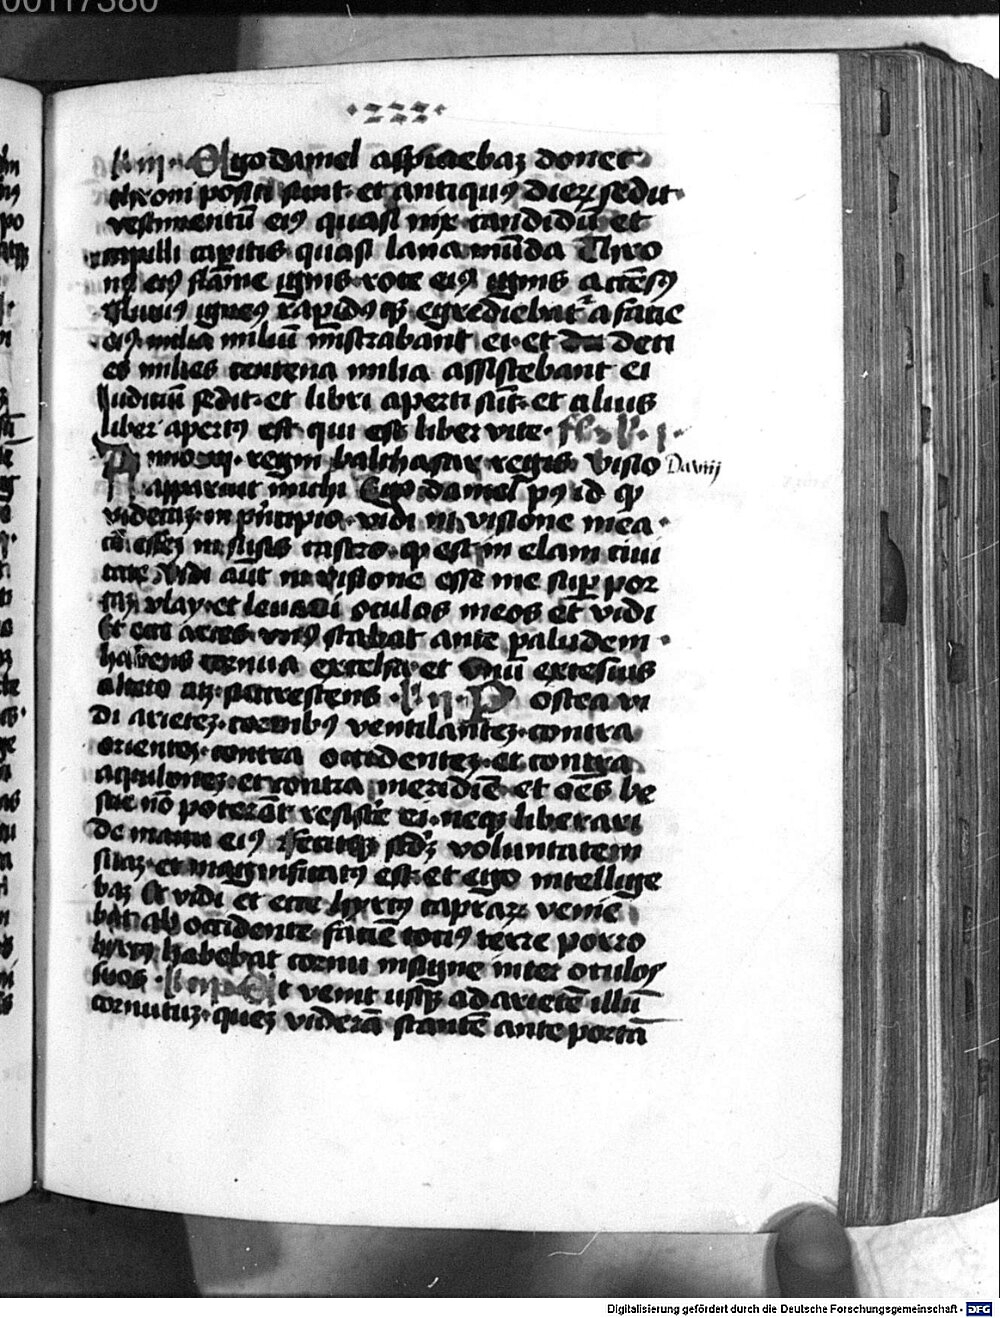 ·zzz·
l' iij · Ego daniel aspiciebaz donec
throni positi sunt · et antiquꝯ dieꝝ sedit ·
vestimentū eiꝯ quasi nix candidū et
capilli capitis quasi lana mūda Thro
nꝯ eiꝯ flāme ignis rote eiꝯ ignis accēsꝯ
fluuiꝯ igneꝯ rapidꝯqꝫ egrediebat' a facie
eiꝯ milia miliū mīstrabant ei · et deci
es milies centena milia assistebant ei
Iudiciū sedit · et libri aperti sūt · et alius
liber apertꝯ est · qui est liber vite ·
Anno iij · regni balthasar regis · visio
Da viij
apparuit michi Ego daniel pꝯ id qꝫ
viderāz in prīcipio · vidi in visione mea ·
cū essez in susis castro · qꝫ est in elam ciui
tate Vidi aūt in visione esse me sup por
taz vlay · et leuaui oculos meos et vidi
Et ecce aries vnꝯ stabat ante paludem ·
habens cornua excelsa · et vnū excelsius
altero atqꝫ succrescens · l' ij · Postea vi
di arietez · cornibꝯ ventilantez · contra
orientez · contra occidentez · et contra
aquilonez · et contra meridiē · et oēs be
stie nō poterāt resistē ei · neqꝫ liberari
de manu eiꝯ fecitqꝫ scdz voluntatem
suaz · et magnificatꝯ est · et ego intellige
baz Et vidi et ecce hyrcꝯ caprarz venie
bat ab occidente faciē totiꝯ terre porro
hyrcꝯ habebat cornu insigne inter oculos
suos · l' iij · Et venit usqꝫ ad arietē illū
cornutuz · quez viderā stantē ante portā
Digitalisierung gefördert durch die Deutsche Forschungsgemeinschaft - DFG